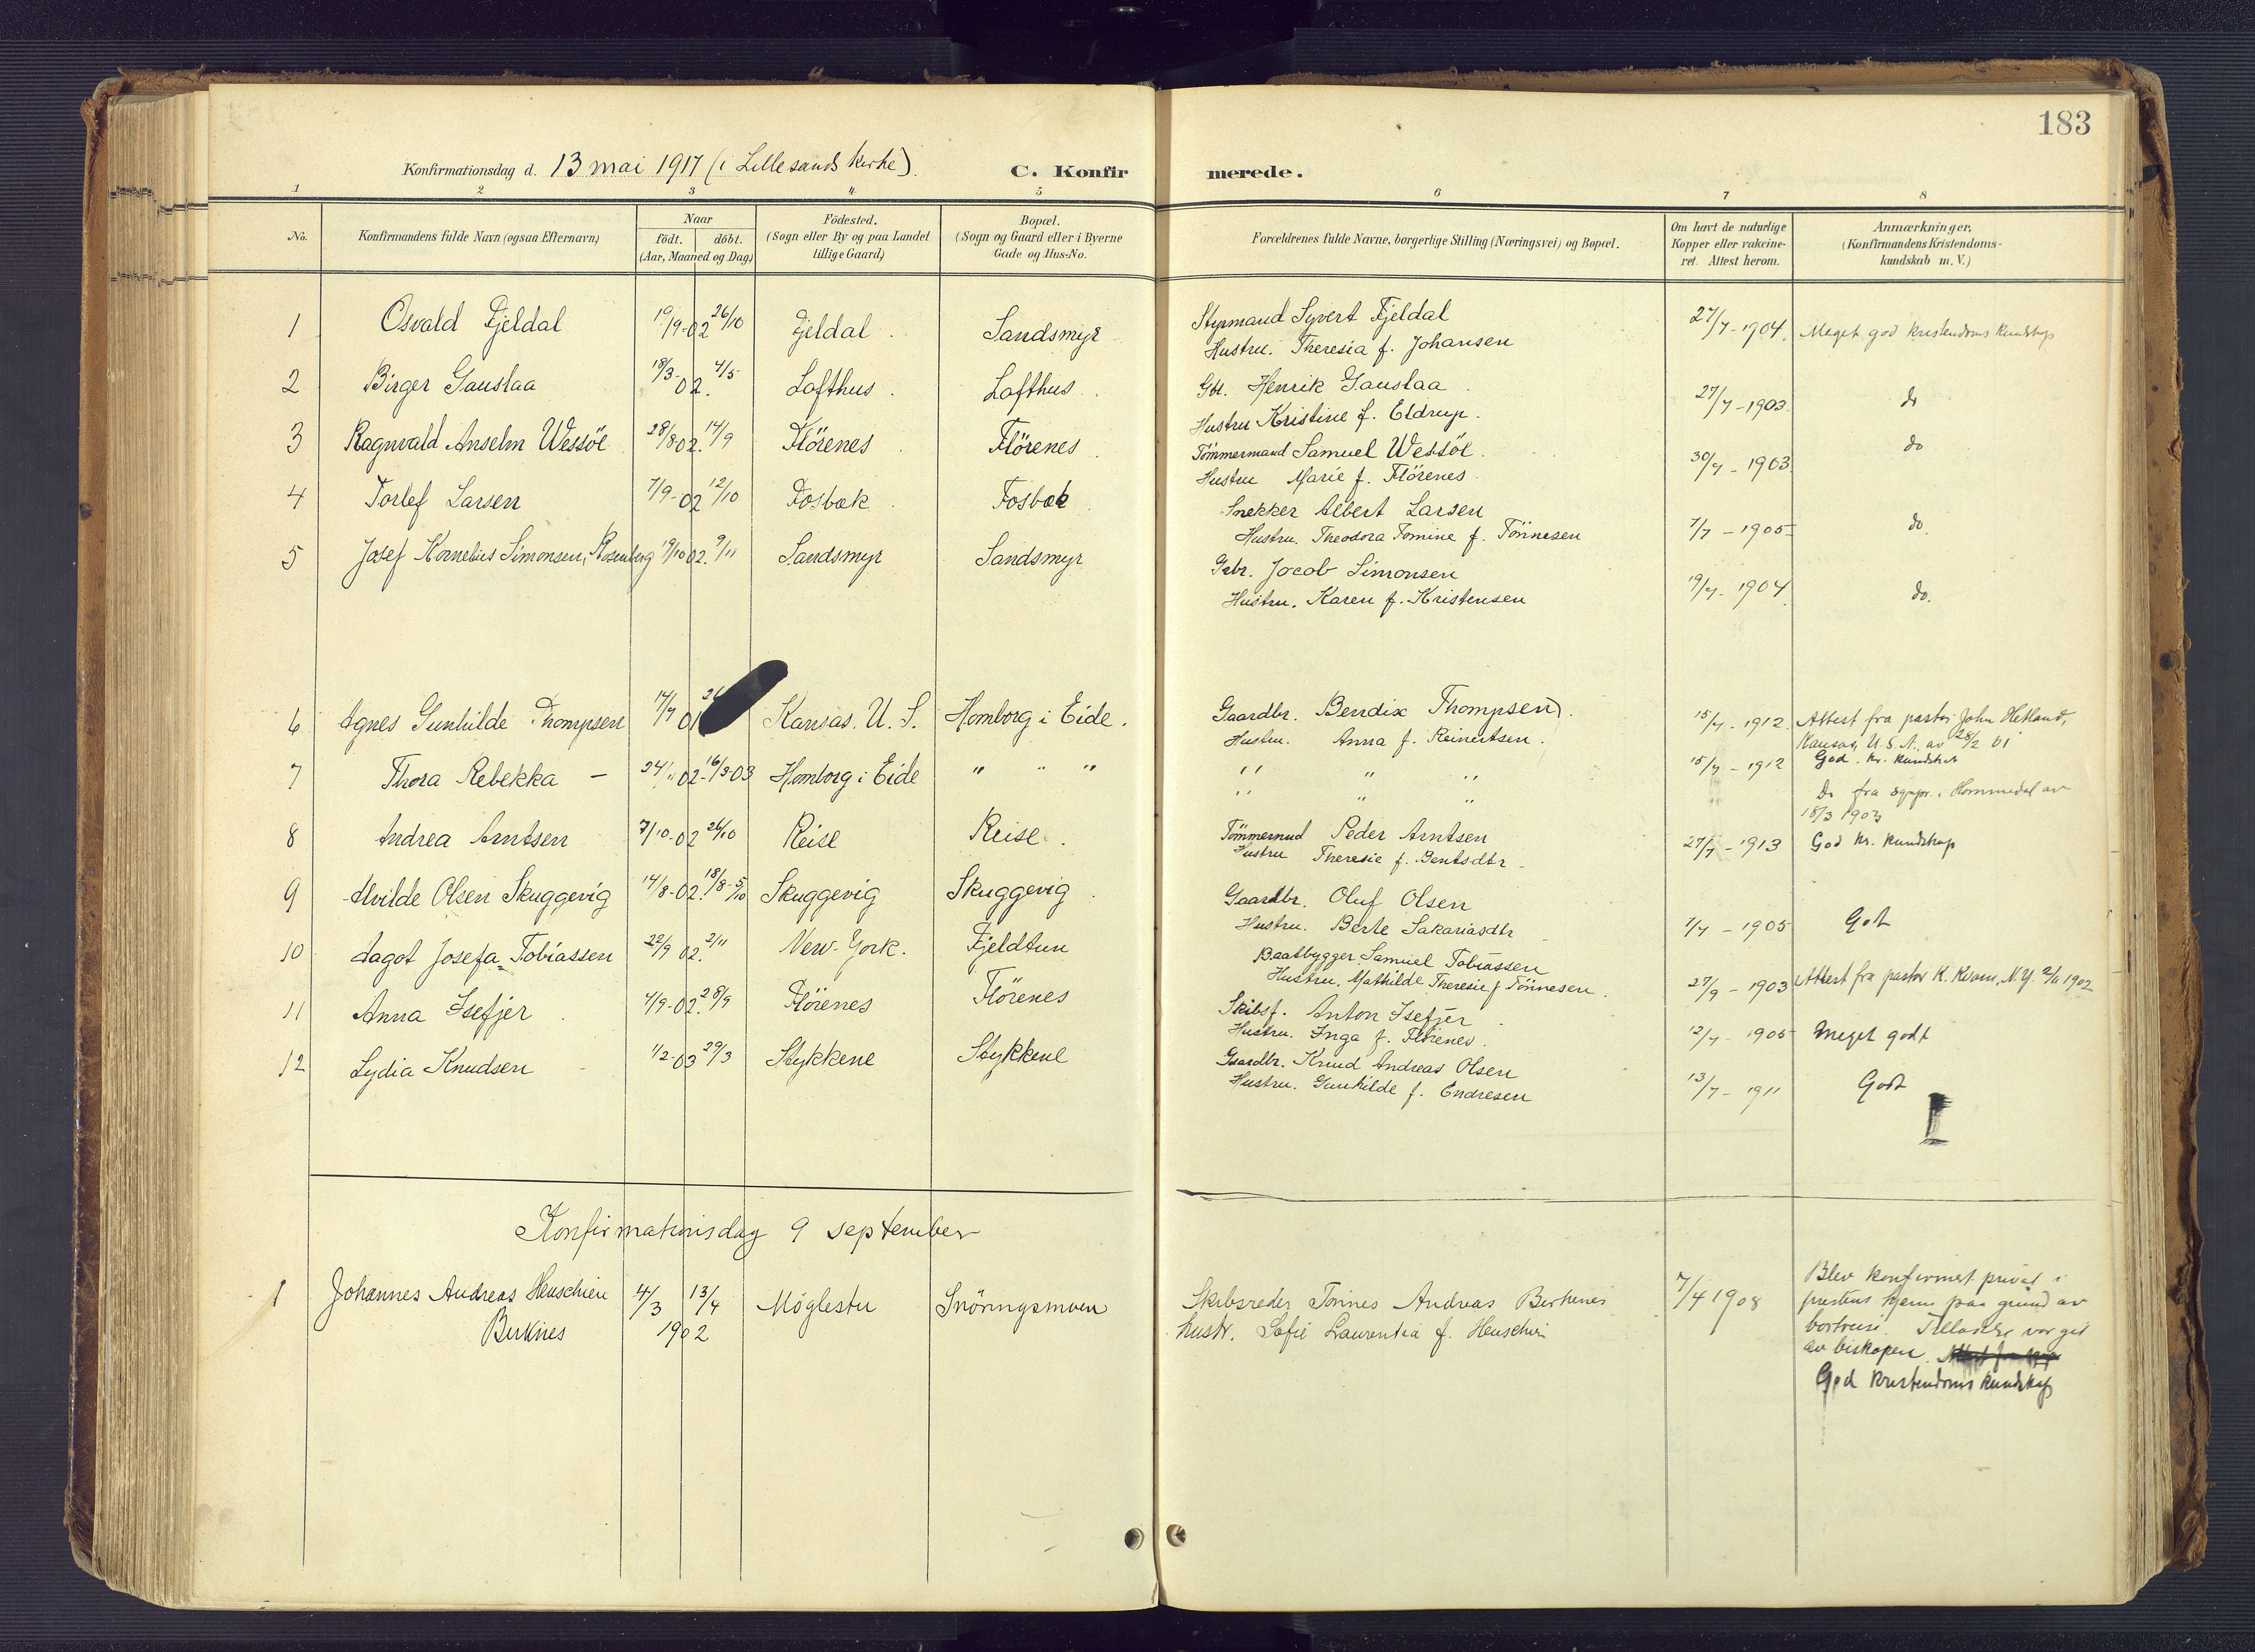 183
Konfirmationsdag d. 13 mai 1917 (i Lillesands kirke). C. Konfirmerede.
1 2 3 4 5 6 7 8
No. Konfirmandens fulde Navn (ogsaa Efternavn) Naar födt. döbt. (Aar, Maaned og Dag) Födested. (Sogn eller By og paa Landet tillige Gaard) Bopæl. (Sogn og Gaard eller i Byerne Gade og Hus-No. Forældrenes fulde Navne, borgerlige Stilling (Næringsvei) og Bopæl. Om havt de naturlige Kopper eller vakcineret. Attest herom. Anmærkninger, (Konfirmandens Kristendomskundskab m. V.)
1 Osvald Fjeldal 19/9-02 26/10 Fjeldal Sandsmyr Styrmand Syvert Fjeldal 27/7-1904. Meget god kristendoms kundskap
Hustru. Theresia f. Johansen
2 Birger Gauslaa 18/3-02. 4/5 Lofthus Lofthus Gbr. Henrik Gauslaa 27/7-1903. do
Hustru Kristine f. Eldrup.
3 Ragnvald Anselm Wessöe 28/8 02. 14/9 Flörenes Flörenes Tömmermand Samuel Wessöe 30/7-1903. do
Hustru Marie f. Flörenes
4 Torlef Larsen 7/9-02 12/10 Fosbæk Fosbæk Snekker Albert Larsen 7/7-1905 do.
Hustru. Theodora Tomine f. Tönnesen
5 Josef Kornelius Simonsen, Rosenberg 19/10 02. 9/11 Sandsmyr Sandsmyr Gbr. Jacob Simonsen 19/7-1904. do.
Hustru. Karen f. Kristensen
6 Agnes Gunhilde Thompsen 17/7 01 Kansas. U. S. Homborg i Eide. Gaardbr. Bendix Thompsen. 15/7-1912. Attest fra pastor John Hetland,
Hustru. Anna f. Reinertsen. Kansas, U. S. A. av 28/2 01
God kr. kundskap
7 Thora Rebekka — 24/11 02-16/3-03 Homborg i Eide " " " " " " 15/7-1912
" " " Do fra sgnpr. i Hommedal av
18/3 1903
8 Andrea Arntsen 7/10-02 26/10 Reise Reise. Tömmermd Peder Arntsen 27/7-1913 God kr. kundskap
Hustru Theresie f. Bentsdtr
9 Alvilde Olsen Skuggevig 14/8-02. 18/8-5/10 Skuggevig Skuggevig Gaardbr. Oluf Olsen 7/7-1905 Godt
Hustru. Berte Sakariasdtr
10 Dagot Josefa Tobiassen 22/9 02. 2/11 New-York. Fjeldtun Baatbygger Samuel Tobiassen 27/9-1903 Attest fra pastor K. Kvam, N.Y. 2/11 1902
Hustru. Mathilde Theresie f Tönnesen.
11 Anna Isefjær 4/9-02. 28/9 Flörenes Flörenes Skibsf. Anton Isefjær 12/7-1905 Meget godt
Hustru. Inga f. Flörenes.
12 Lydia Knudsen 1/2-03 29/3 Stykkene Stykkene Gaardbr. Knud Andreas Olsen 13/7-1911 Godt
Hustru. Gunhilde f. Endresen
Konfirmationsdag 9 september
1 Johannes Andreas Henschien 4/3 13/4 Möglestu Snöringsmoen Skibsreder Tönnes Andreas Birkenes 7/4 1908 Blev konfirmert privat i
Birknes 1902 hustr. Sofie Laurentia f. Henschien prestens hjem paa grund av
bortreise. Tilladelse var git
av biskopen.
God kristendoms kundskap